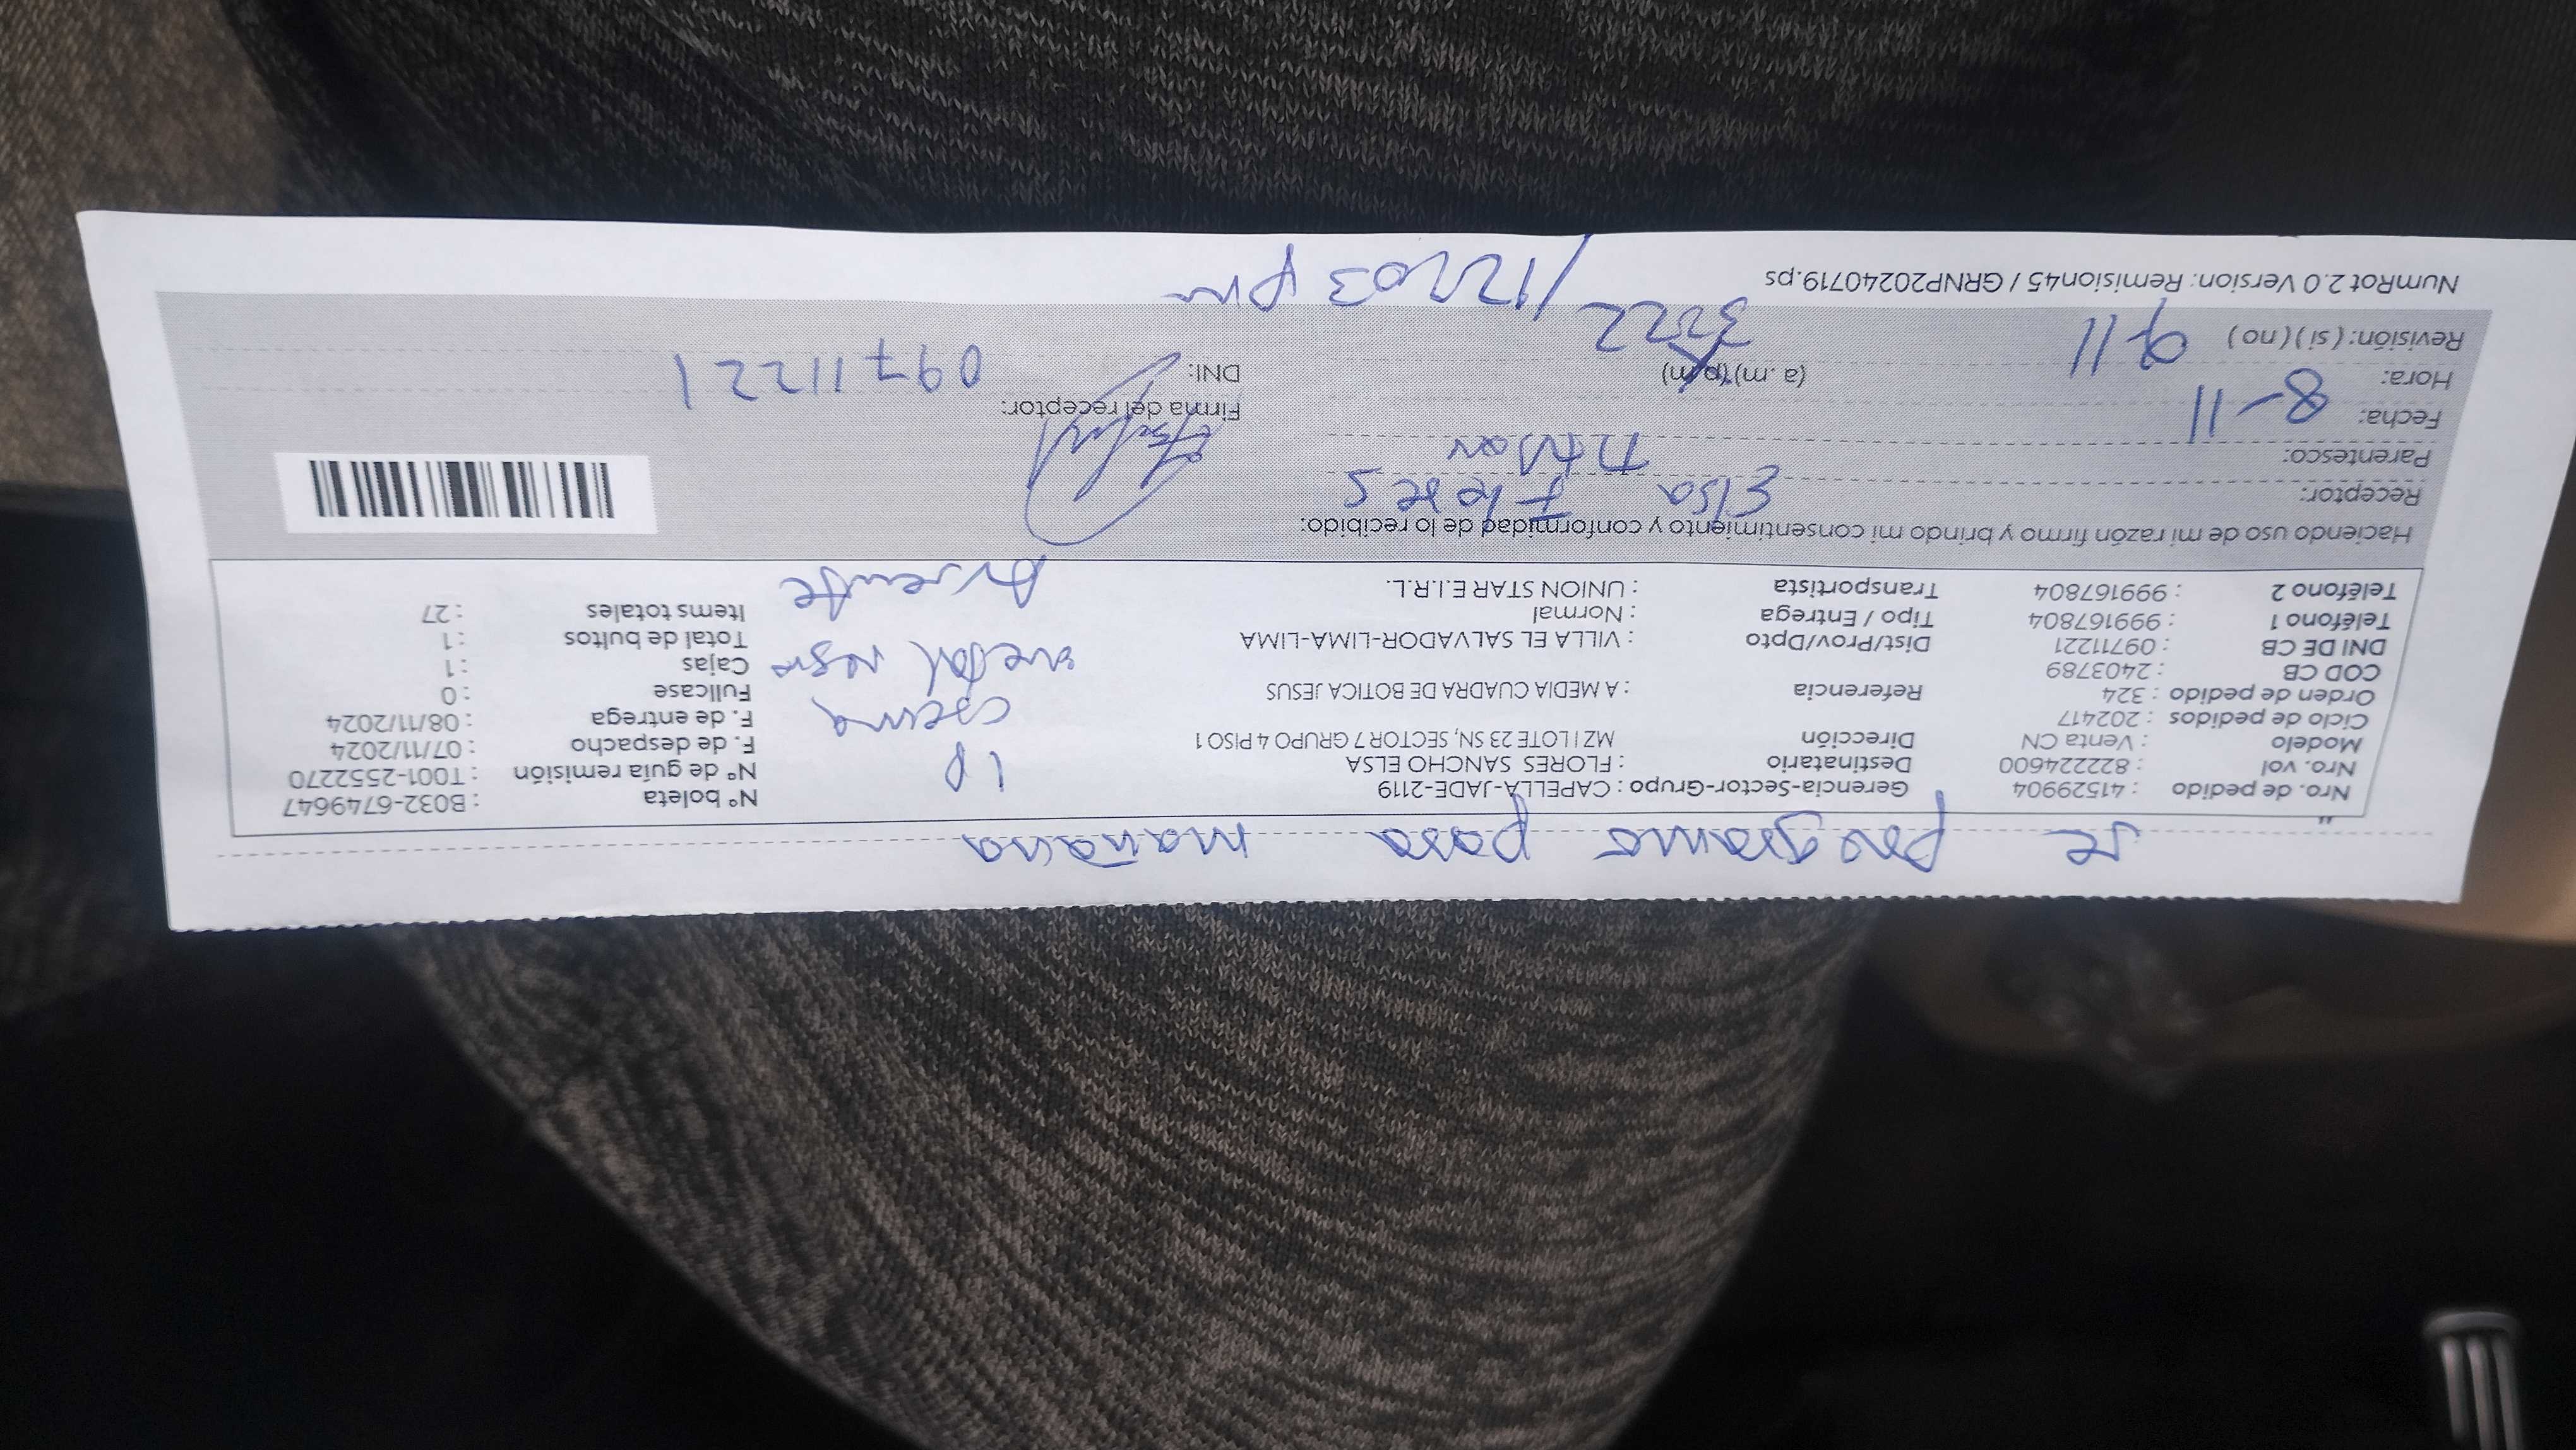 se programo para mañana
Nro. de pedido : 41529904 Gerencia-Sector-Grupo : CAPELLA-JADE-2119 Nº boleta : B032-6749647
Nro. vol : 822224600 Destinatario : FLORES SANCHO ELSA 1 p Nº de guía remisión : T001-2552270
Modelo : Venta CN Dirección MZ I LOTE 23 SN, SECTOR 7 GRUPO 4 PISO 1 F. de despacho : 07/11/2024
Ciclo de pedidos : 202417 F. de entrega : 08/11/2024
Orden de pedido : 324 Referencia : A MEDIA CUADRA DE BOTICA JESUS Fullcase : 0
COD CB : 2403789 metal negro Cajas : 1
DNI DE CB : 09711221 Dist/Prov/Dpto : VILLA EL SALVADOR-LIMA-LIMA Total de bultos : 1
Teléfono 1 : 999167804 Tipo / Entrega : Normal Items totales : 27
Teléfono 2 : 999167804 Transportista : UNION STAR E.I.R.L. Ausente
Haciendo uso de mi razón firmo y brindo mi consentimiento y conformidad de lo recibido:
Receptor: Elsa Flores
Parentesco: titular
Fecha: 8-11 Firma del receptor:
Hora: (a.m) (p.m) DNI: 09711221
Revisión: ( si ) ( no ) 9/11 3:22
NumRot 2.0 Version: Remision45 / GRNP20240719.ps / 12:03 pm